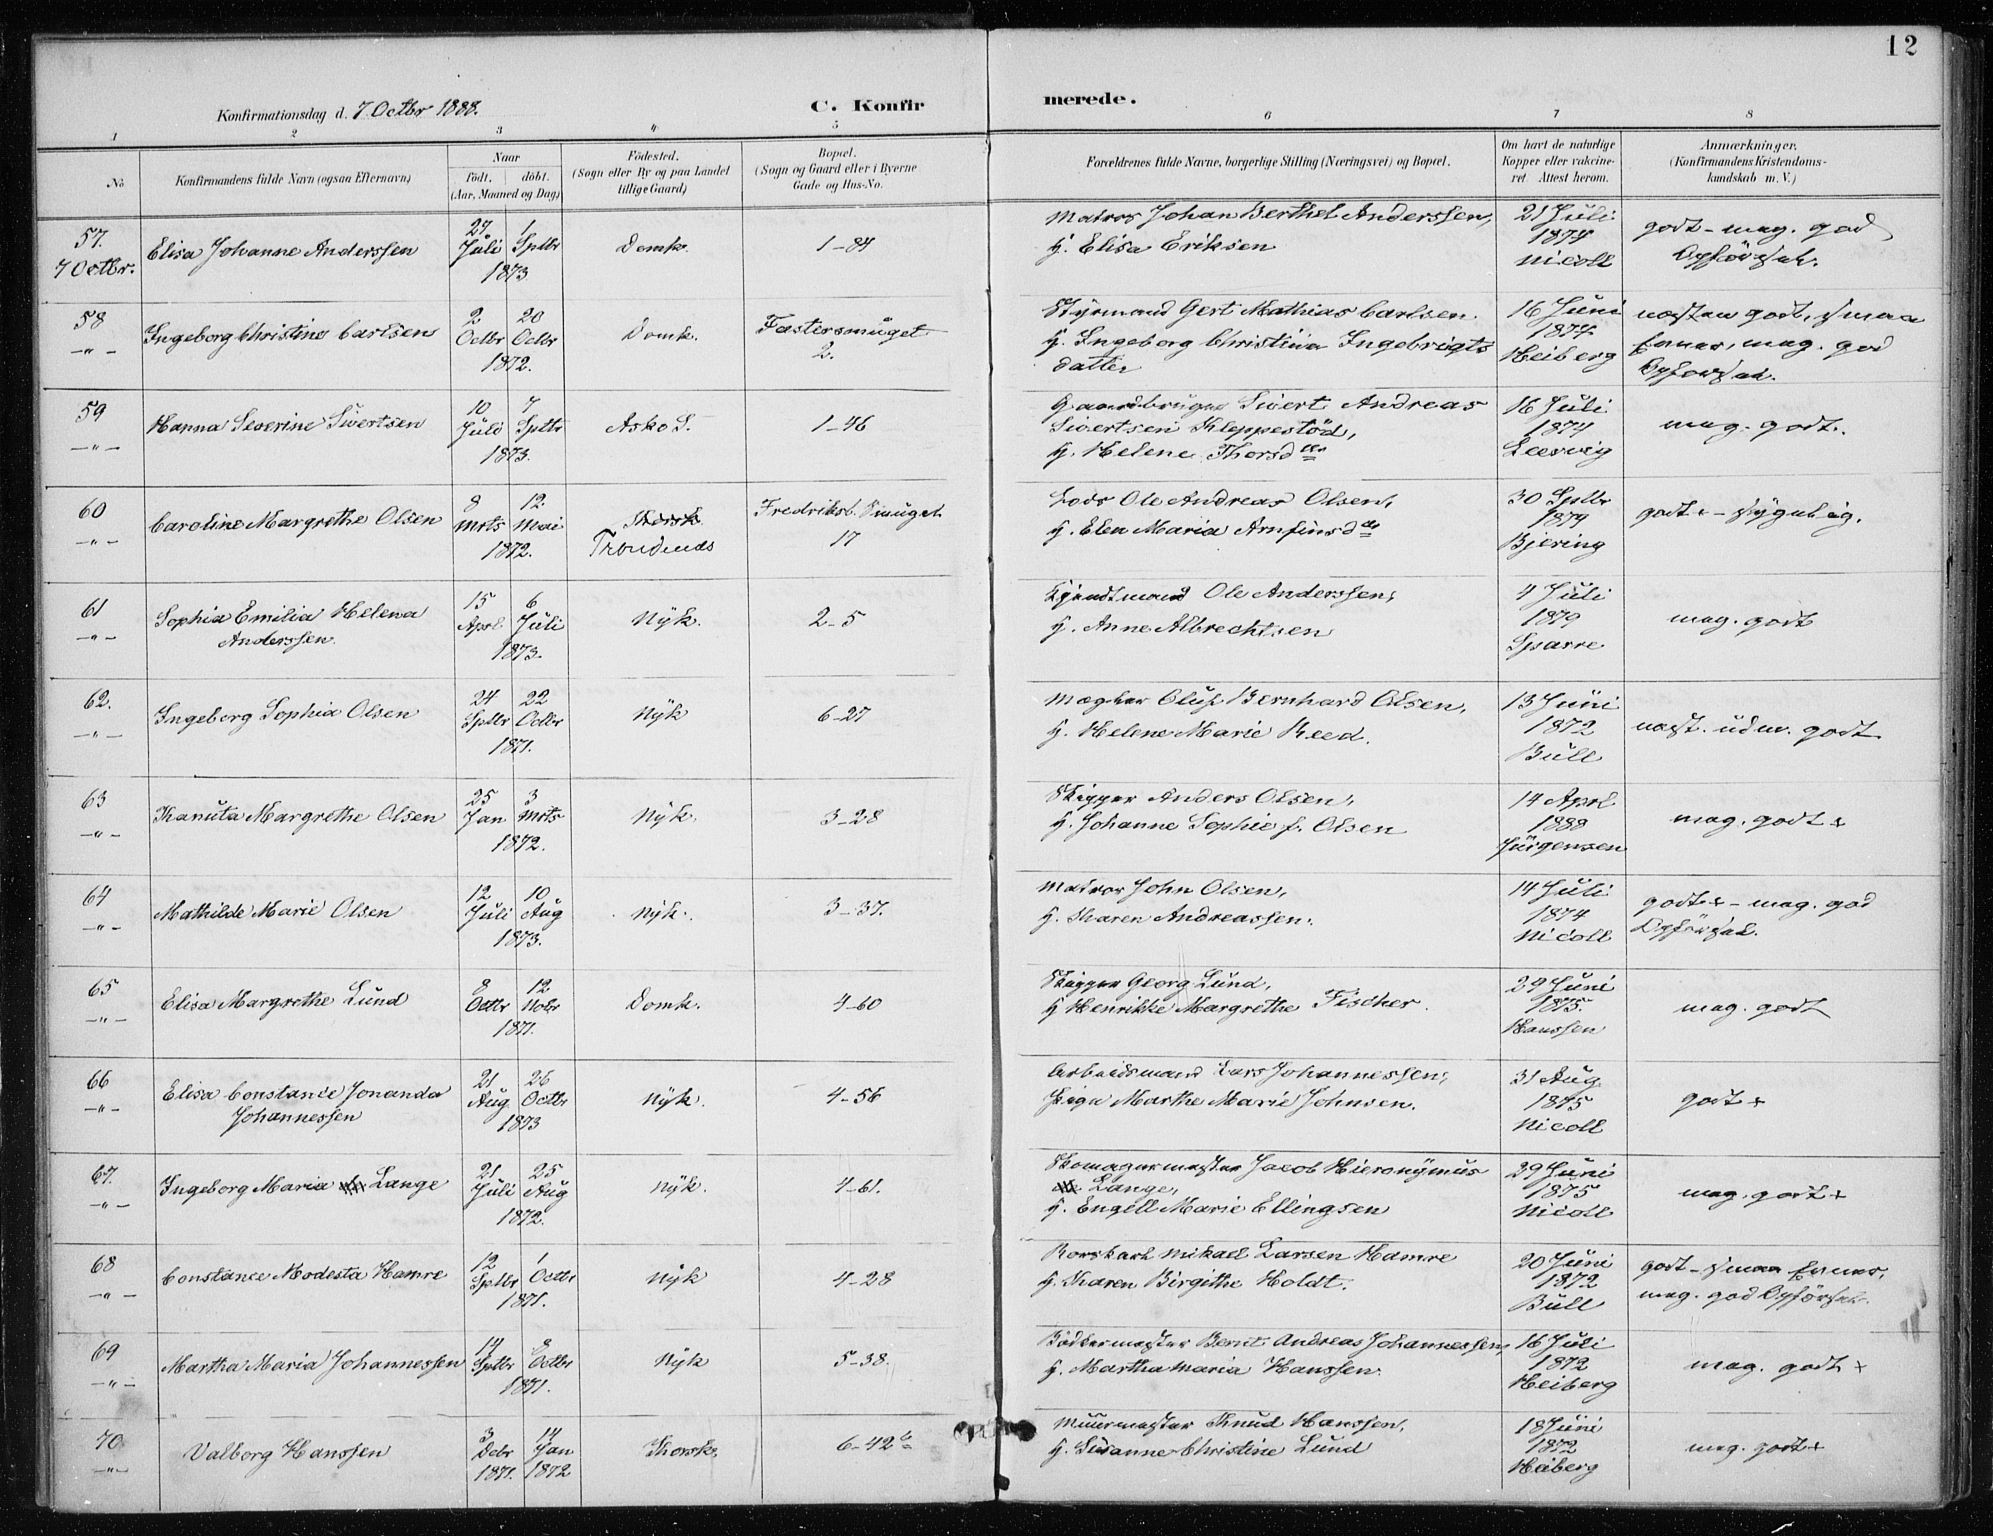 12
Konfirmationsdag d. 7 Octbr 1888.
C. Konfir
merede.
1 2 3 4 5 6 7 8
No
Konfirmandens fulde Navn (ogsaa Efternavn)
Naar
Födt. döbt.
(Aar, Maaned og Dag)
Födested.
(Sogn eller By og paa Landet
tillige Gaard)
Bopæl.
(Sogn og Gaard eller i Byerne
Gade og Hus-No.
Forældrenes fulde Navne, borgerlige Stilling (Næringsvei) og Bopæl.
Om havt de naturlige
Kopper eller vakcine-
ret Attest herom.
Anmærkninger.
(Konfirmandens Kristendoms-
kundskab m. V.)
57.
7 Octbr.
Elisa Johanne Anderssen
27 Juli
1 Sptbr
1873
Domk.
1-84
Matros Johan Berthel Anderssen,
H. Elisa Eriksen
21 Juli
1874
Nicoll
godt - mag. god
Opförsel.
58
-"-
Ingeborg Christine Carlsen
2 Octbr
20 Octbr
1872.
Domk.
Fastersmuget
2.
Styrmand Gert Mathias Carlsen.
H. Ingeborg Christina Ingebrigts
datter
16 Juni
1874
Heiberg
næsten godt, smaa
Evner, mag. god
Opförsel.
59
-"-
Hanna Severine Sivertsen
10 Juli
7 Sptbr
1873.
Askö S.
1-46
Gaardbruger Sivert Andreas
Sivertsen Kleppestöd,
H. Helene Thorsd
16 Juli
1874
Leervig
mag. godt.
60
-"-
Caroline Margrethe Olsen
8 Mrts
12 Mai
1872.
Trondenes
Fredriksb. Smuget
17
Lods Ole Andreas Olsen,
H. Elen Maria Arnfinsd
30 Sptbr
1879
Bjering
godt + - sygelig.
61
-"-
Sophia Emilia Helena
Anderssen
15 Aprl.
6 Juli
1873.
Nyk.
2-5
Ole Anderssen,
H. Anne Albrechtsen
4 Juli
1879
Sparre
mag. godt
62.
-"-
Ingeborg Sophia Olsen
24 Sptbr
22 Octbr
1871.
Nyk
6-27
Mægler Oluf Bernhard Olsen,
H. Helene Marie Reed.
13 Juni
1872
Bull
næst. udm. godt
63
-"-
Kanuta Margrethe Olsen
25 Jan
3 Mrts
1872.
Nyk.
3-28
Skipper Anders Olsen,
H. Johanne Sophie f. Olsen
14 Aprl
1888
Jürgensen
mag. godt +
64
-"-
Mathilde Marie Olsen
12 Juli
10 Aug
1873.
Nyk.
3-37.
Matros John Olsen,
H. Karen Andreassen.
14 Juli
1874
Nicoll
godt + - mag. god
Opförsel.
65
-"-
Elisa Margrethe Lund
8 Octbr
12 Nobr
1871.
Domk.
4-60
Skipper Georg Lund,
H Henrikke Margrethe Fischer.
29 Juni
1875.
Hanssen
mag. godt
66
-"-
Elisa Constance Jonanda
Johannessen
21 Aug
26 Octbr
1873
Nyk.
4-56
Arbeidsmand Lars Johannessen,
Pige Marthe Marie Johnsen.
31 Aug
1875
Nicoll
godt +
67.
-"-
Ingeborg Maria Lange
21 Juli
25 Aug
1872.
Nyk.
4-61.
Skomagermester Jacob Hieronymus
Lange,
H. Engell Marie Ellingsen
29 Juni
1875
Nicoll
mag. godt +
68
-"-
Constance Modesta Hamre
12 Sptbr
1 Octbr
1871.
Nyk
4-28
Rorskarl Mikael Larsen Hamre
H. Karen Birgithe Holdt.
20 Juni
1872
Bull
godt - smaa Evner,
mag. god Opförsel.
69
-"-
Martha Maria Johannessen
14 Sptbr
8 Octbr
1871.
Nyk
5-38.
Bödkermester Bernt Andreas Johannessen,
H. Martha Maria Hanssen.
16 Juli
1872
Heiberg
mag. godt +
70
-"-
Valborg Hanssen
3 Debr 1871.
14 Jan 1872
Korsk.
6-42
Muurmester Knud Hanssen,
H. Susanne Christine Lund
18 Juni
1872
Heiberg
mag. godt +